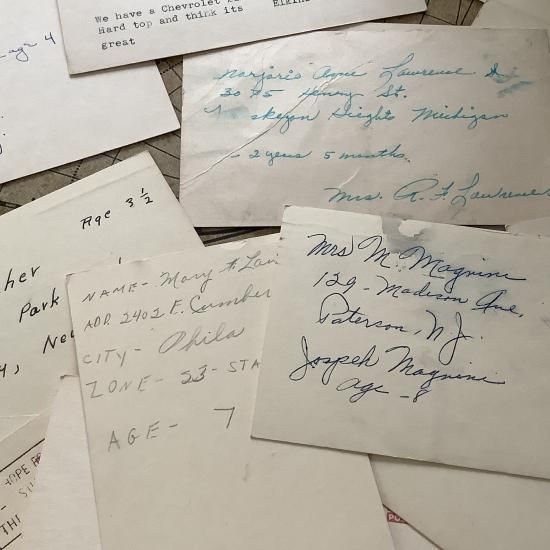 We have a Chevrolet
Hard top and think its
great
age 4
Marjorie Anne Lawrence
3075 Henry St.
skegon Heights Michigan
2 years 5 months.
Mrs. R. F. Lawrence
Age 3 ½
her
Park
NAME- Mary A. Law
ADD. 2402 E. Cumber
CITY- Phila
ZONE- 23- STA
AGE- 7
Mrs M. Magnini
129- Madison Ave,
Paterson, N.J.
Jospeh Magnini
age -8
HOPE
THI